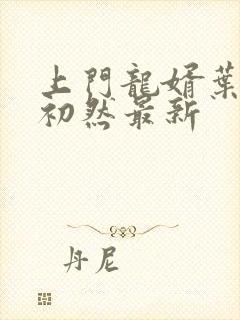 上門龍婿葉
初然最新
丹尼